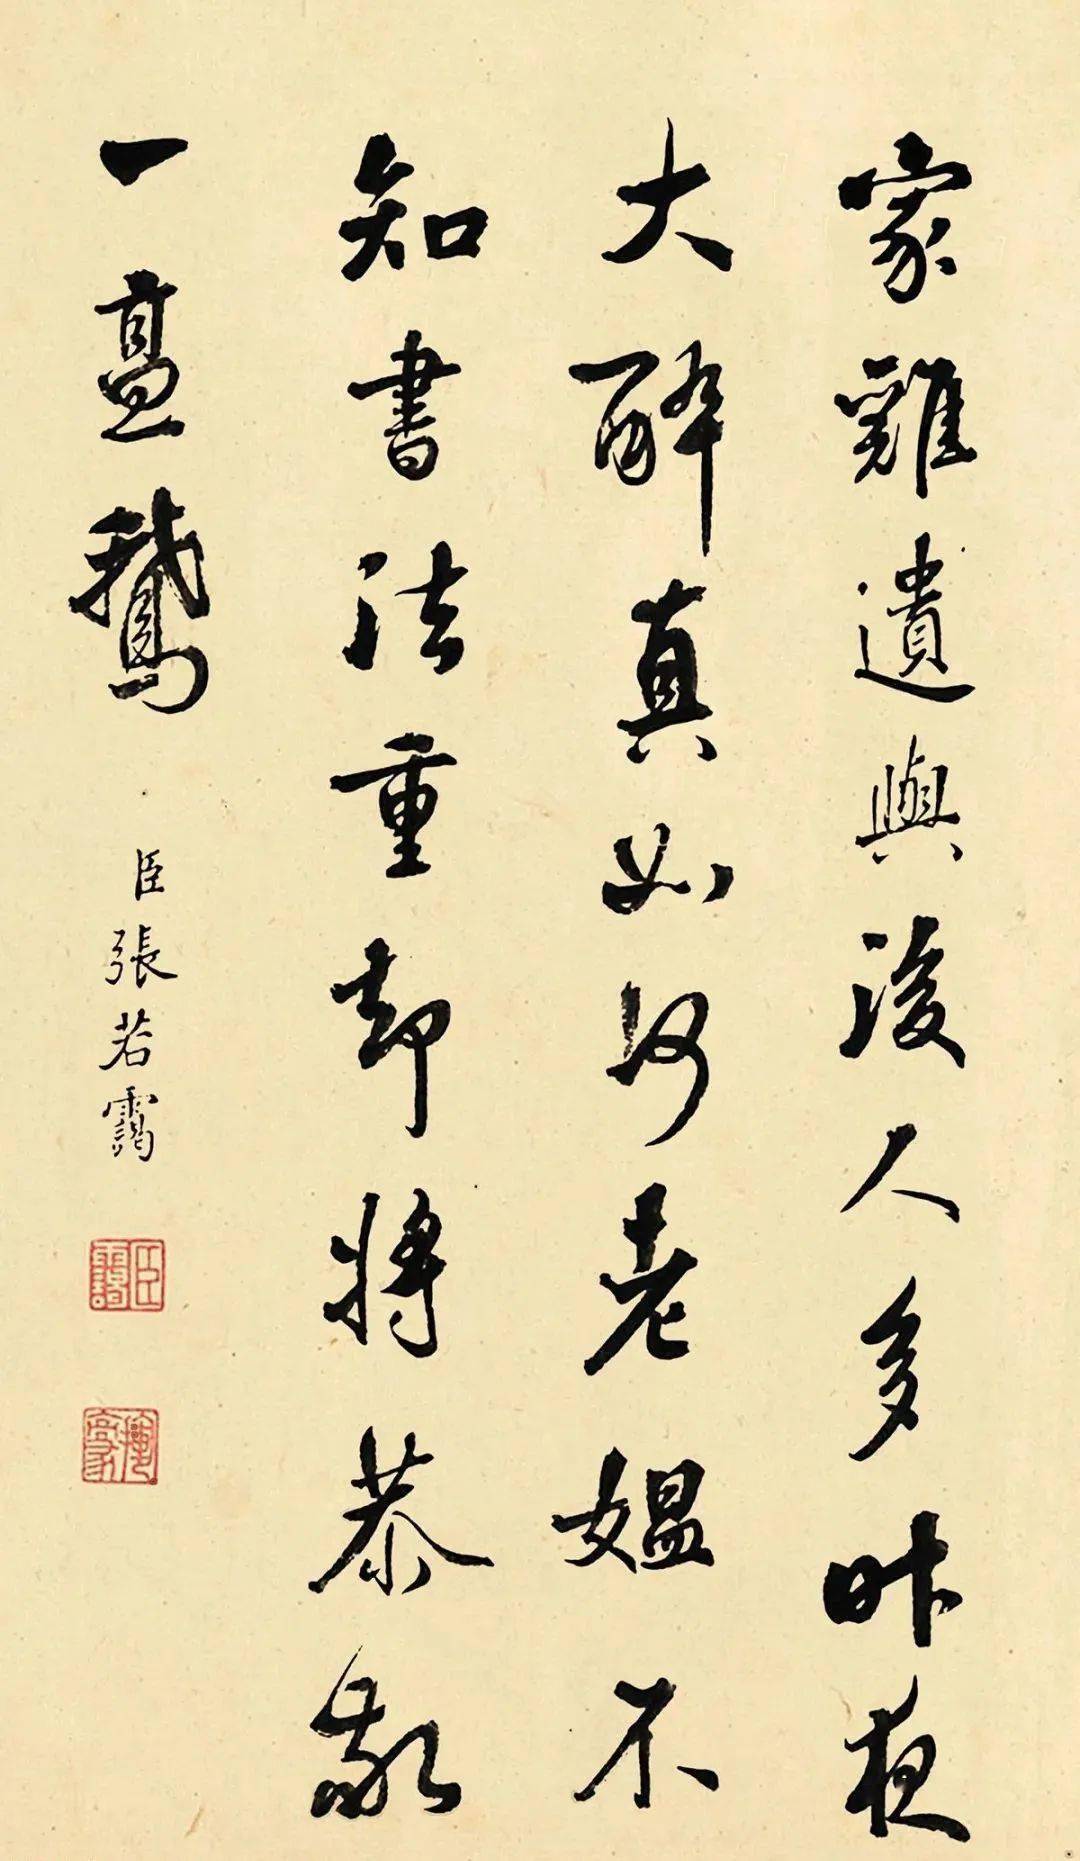 家雞遺與後人多昨夜
大醉真如何老媼不
知書法重却將恭敬
一鵝
臣張若靄
臣靄